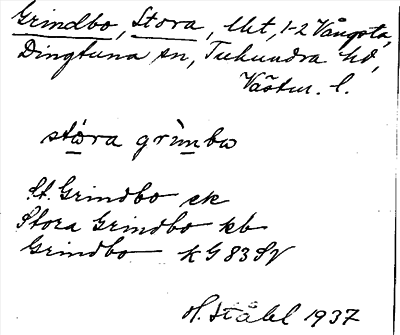 Grindbo, Stora, lht, 1-2 Vångsta,
Dingtuna sn, Tuhundra hd,
Västm. l.
stòra grìmbo
St. Grindbo ek
Stora Grindbo kb
Grindbo KG 83 SV
H. Ståhl 1937